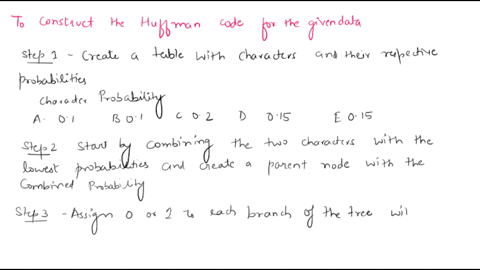 To construct the Huffman code for the given data
Step 1 - Create a table with characters and their respective
probabilities
Character Probability
A. 0.1 B 0.1 C 0.2 D 0.15 E 0.15
Step 2 Start by combining the two characters with the
lowest probabilities and create a parent node with the
Combined Probability
Step 3 - Assign 0 or 1 to each branch of the tree wil